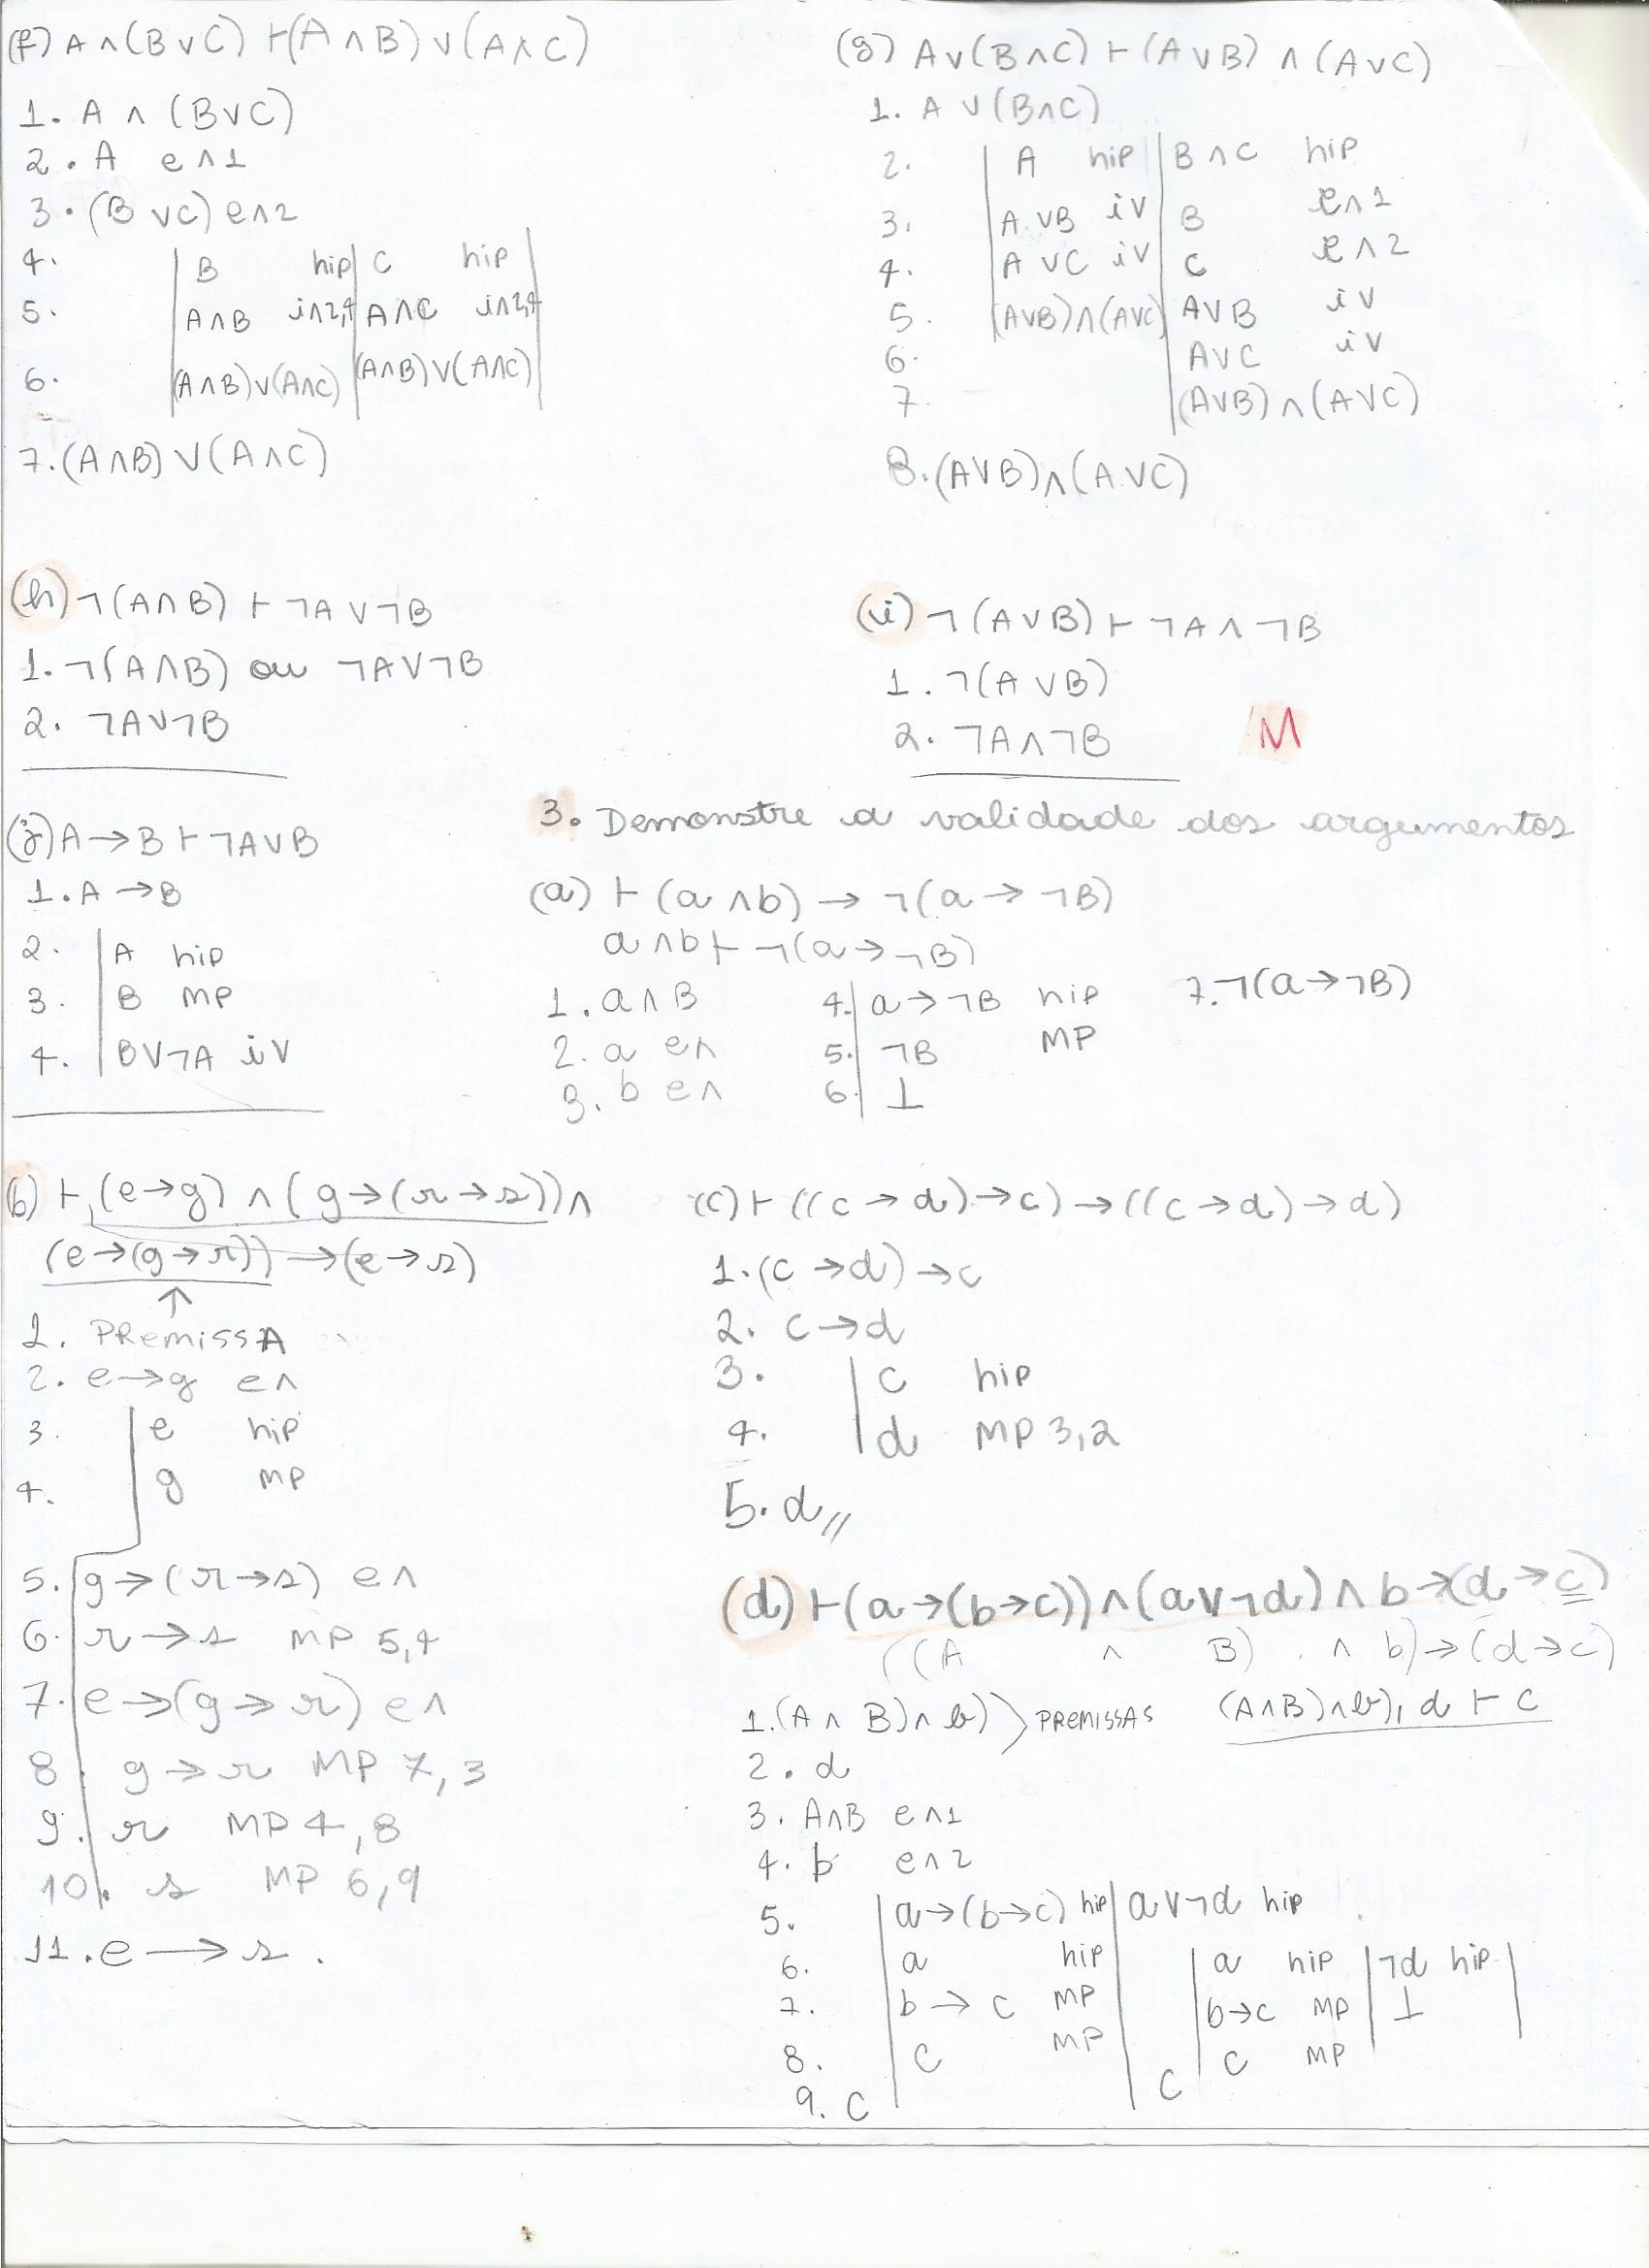 (f) A ∧ (B ∨ C) ⊢ (A ∧ B) ∨ (A ∧ C)
1. A ∧ (B ∨ C)
2. A e∧1
3. (B ∨ C) e∧2
4. | B hip | C hip |
5. | A∧B i∧2,4 | A∧C i∧2,4 |
6. | (A∧B)∨(A∧C) | (A∧B)∨(A∧C) |
7. (A∧B) ∨ (A∧C)
(g) A∨(B∧C) ⊢ (A∨B) ∧ (A∨C)
1. A ∨ (B∧C)
2. | A hip | B∧C hip
3. | A∨B i∨ | B e∧1
4. | A∨C i∨ | C e∧2
5. | (A∨B)∧(A∨C) | A∨B i∨
6. | A∨C i∨
7. | (A∨B)∧(A∨C)
8. (A∨B)∧(A∨C)
(h) ¬(A∧B) ⊢ ¬A∨¬B
1. ¬(A∧B) ou ¬A∨¬B
2. ¬A∨¬B
(i) ¬(A∨B) ⊢ ¬A∧¬B
1. ¬(A∨B)
2. ¬A∧¬B M
(j) A→B ⊢ ¬A∨B
1. A→B
2. | A hip
3. | B MP
4. | B∨¬A i∨
3. Demonstre a validade dos argumentos
(a) ⊢ (a∧b) → ¬(a→¬B)
a∧b ⊢ ¬(a→¬B)
1. a∧B
2. a e∧
3. b e∧
4. | a→¬B hip
5. | ¬B MP
6. | ⊥
7. ¬(a→¬B)
(b) ⊢ (e→g) ∧ (g→(r→s)) ∧
(e→(g→r)) → (e→s)
↑
1. PRemissA
2. e→g e∧
3. | e hip
4. | g MP
5. | g→(r→s) e∧
6. | r→s MP 5,4
7. | e→(g→r) e∧
8. | g→r MP 7,3
9. | r MP 4,8
10. | s MP 6,9
11. e→s.
(c) ⊢ ((c→d)→c)→((c→d)→d)
1. (c→d)→c
2. c→d
3. | c hip
4. | d MP 3,2
5. d //
(d) ⊢ (a→(b→c))∧(a∨¬d)∧b→(d→c)
((A ∧ B) ∧ b)→(d→c)
1. (A∧B)∧b) ⟩ PREMISSAS (A∧B)∧b), d ⊢ C
2. d
3. A∧B e∧1
4. b e∧2
5. | a→(b→c) hip | a∨¬d hip
6. | a hip | | a hip | ¬d hip |
7. | b→c MP | | b→c MP | ⊥ |
8. | C MP | | C MP
9. C | | C